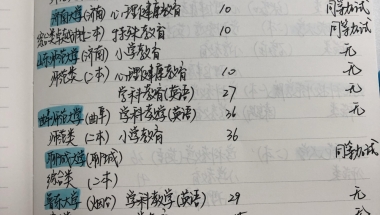 济南大学(济南) 心理健康教育 10 同等加试
综合类 特殊教育 10 同等加试
山东师范大学(济南) 小学教育 无
师范类(一本) 心理健康教育 10 无
学科教育(英语) 27 无
曲阜师范大学(曲阜) 学科教学(英语) 36 无
师范类(一本) 小学教育 36 无
聊城大学(聊城) 同等加试
综合类(二本)
鲁东大学(烟台) 学科教学(英语) 29 无
无